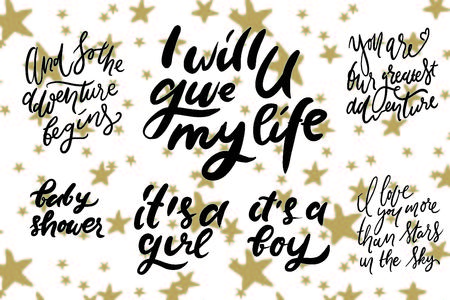 And so the
adventure
begins
I will
give U
my life
You are
our greatest
adventure
baby
shower
it's a
girl
it's a
boy
I love
you more
than stars
in the sky